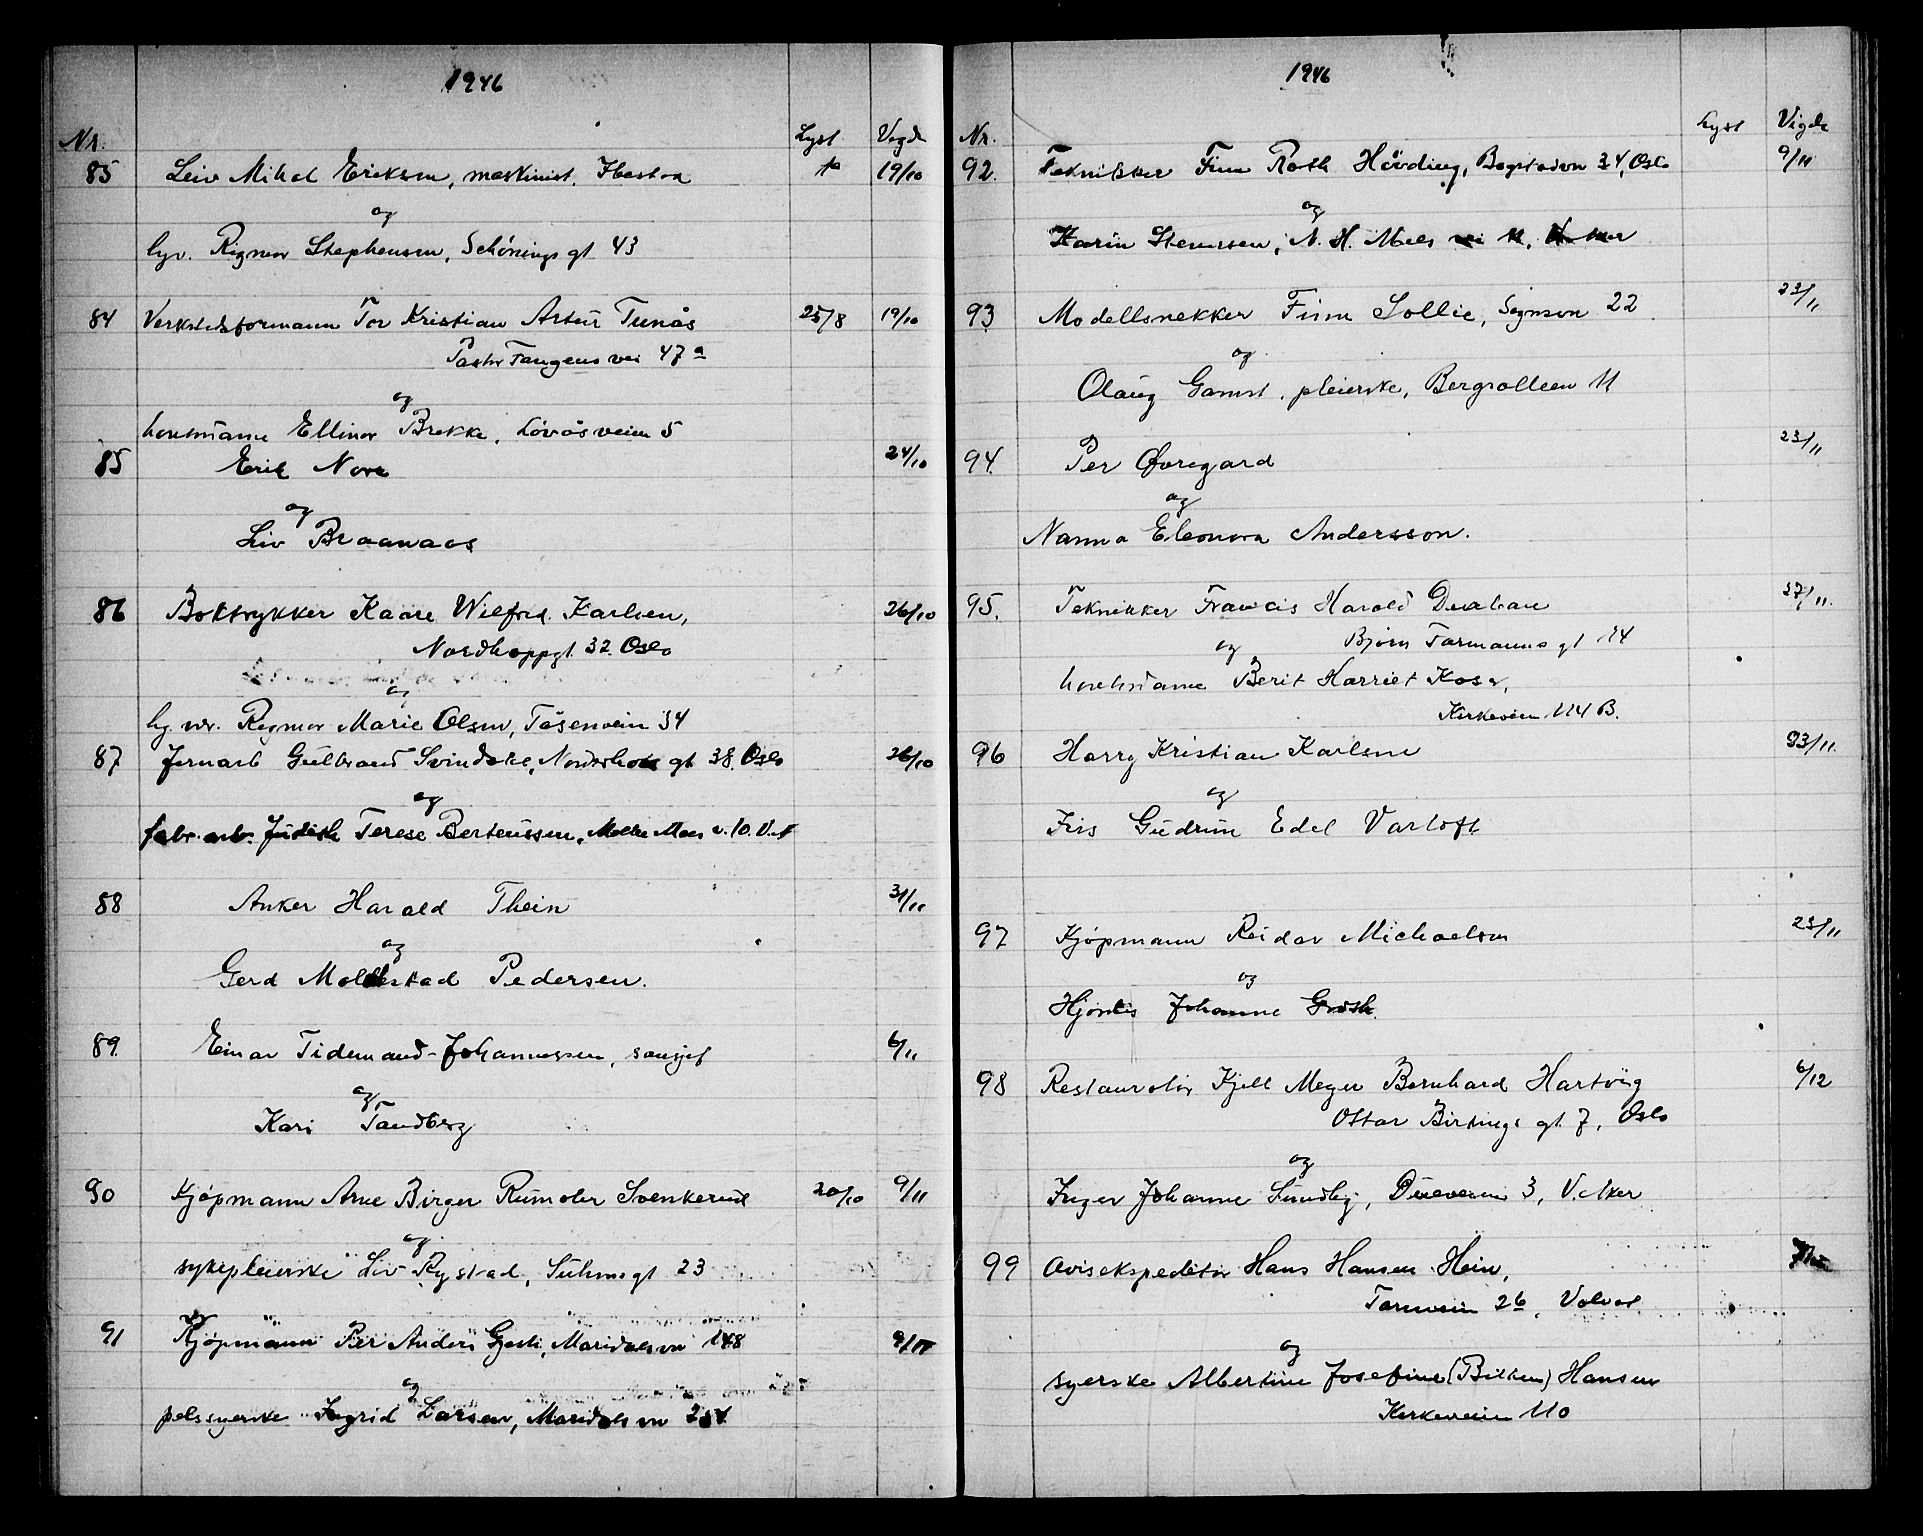 1946
Nr. Lyst Vigde
85 Leiv Mikal Eriksen, maskinist, Ibestad 19/10
og
Rigmor Stephensen, Schönings gt 43
84 Verkstedsformann Tor Kristian Artur Tunås 25/8 19/10
Pastor Fangens vei 47a
og
Ellinor Brekke, Lövåsveien 5
85 Erik Nore 24/10
og
Liv Braanaas
86 Boktrykker Kaare Wilfred Karlsen, 26/10
32 Oslo
og
Rigmor Marie Olsen, Tåsenveien 34
87 Jernarb Gulbrand Svindahl, gt 38. Oslo 26/10
og
fabr. arb. Judith Terese Berteussen, v. 10.
88 Anker Harald Thein
og
Gerd Mollestad Pedersen.
89 Einar Tidemand-Johannessen, 6/11
og
Kari Tandberg
90 Kjøpmann Arne Birger Svenkerud 20/10 9/11
og
sykepleierske Liv Rystad, Suhmsgt 23
91 Kjøpmann Per Anders Maridalsvn 148 9/11
og
pelssyerske Ingrid Larsen, Maridalsvn
1946
Nr. Lyst Vigde
92. Tekniker Finn Roth Høvding, Bogstadvn 34, Oslo 9/11
og
Karin Stenersen, N. H.
93 Modellsnekker Finn Sollie, Sognsvn 22 23/11
og
Olaug Gamst, pleierske, Bergsalleen 11
94. Per Øvregard 23/11
og
Nanna Eleonora Andersson.
95. Tekniker Francis Harald
og Bjørn Farmanns gt 14
Berit Harriet
Kirkeveien 114 B.
96 Harry Kristian Karlsen 23/11.
og
Gudrun Edel
97 Kjøpmann Reidar Michaelsen 23/11
og
Hjørdis Johanne
98 Restauratör Kjell Meyer Bernhard Hartvig 6/12
gt 7, Oslo
og
Inger Johanne Sundby, 3, V. Aker
99 Avisekspeditör Hans Hansen Hein,
26,
og
syerske Albertine Josefine Hansen
Kirkeveien 110